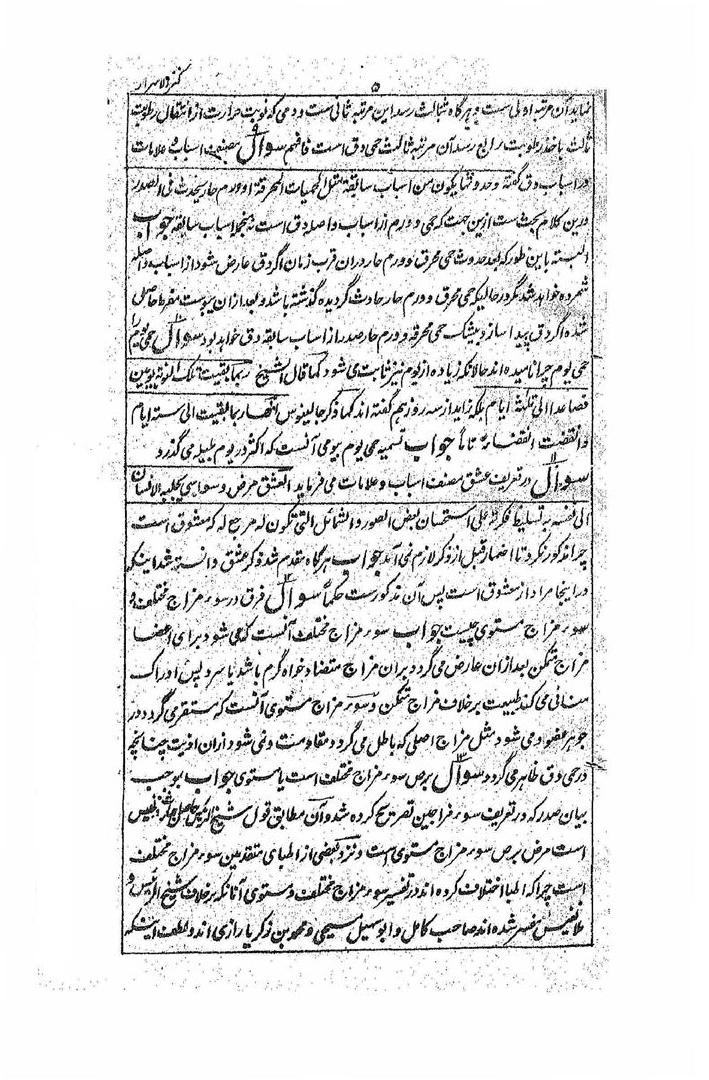 ۵
کنز الاسرار
نماید آن مرتبه اولی ست و هرگاه ثبالث رسد این مرتبه ثانی ست و دمی که نوبت حرارت از انتقال رطوبت
ثالث باخذ رطوبت رابع رسد آن مرتبه ثالث حمی دق است فافهم سوال ۹ مصنف اسباب و علامات
در اسباب دق گفته وحدوثها یکون من اسباب سابقة مثل الحمیات المحرقة او ورم حار یحدث فی الصدر
درین کلام بحث ست ازین جهت که حمی و ورم از اسباب واصله دق است نه منجمله اسباب سابقه جواب
البته باین طور که بعد حدوث حمی محرقه و ورم حار در ان قرب زمان اگر دق عارض شود از اسباب واصله
شمرده خواهد شد مگر در حالیکه حمی محرقه و ورم حار حادث گردیده گذشته باشد و بعد ازان یبوست مفرط حاصل
شده اگر دق پیدا سازد بیشک حمی محرقه و ورم حار صدر از اسباب سابقه دق خواهد بود سوال ۱۰ حمی یوم را
حمی یوم چرا نامیده اند حالانکه زیاده از یوم نیز ثابت می شود کما قال الشیخ ربما بقیت تلک النوبة یومین
فصاعدا الی ثلثة ایام بلکه زاید از سه روز هم گفته اند کما ذکر جالینوس انها ربما بقیت الی ستة ایام
وانقضت انقضاء تاما جواب تسمیه حمی یوم بیومی آنست که اکثر در یوم بلیله می گذرد
سوال ۱۱ در تعریف عشق مصنف اسباب و علامات می فرماید العشق مرض وسواسی یجلبه الانسان
الی نفسه به تسلیط فکرته علی استحسان بعض الصور و الشمائل التی تکون له مرجع له که معشوق است
چرا مذکور نکرد تا اضمار قبل از ذکر لازم نمی آمد جواب هرگاه مقدم شد ذکر عشق دانسته شد اینکه
در اینجا مراد از معشوق است پس آن مذکورست حکماً سوال ۱۲ فرق در سوء مزاج مختلف و
سوء مزاج مستوی چیست جواب سوء مزاج مختلف آنست که می شود برای اعضا
مزاج متمکن بعد ازان عارض می گردد بران مزاج متضاد خواه گرم باشد یا سرد پس ادراک
منافی می کند طبیعت بر خلاف مزاج متمکن و سوء مزاج مستوی آنست که مستقر می گردد در
جوهر عضو و می شود مثل مزاج اصلی که باطل می گردد مقاومت و نمی شود ازان اذیت چنانچه
در حمی دق ظاهر می گردد سوال ۱۳ برص سوء مزاج مختلف است یا مستوی جواب بموجب
بیان صدر که در تعریف سوء مزاجین تصریح کرده شد و آن مطابق قول شیخ الرئیس نفیس
است مرض برص سوء مزاج مستوی است و نزد بعضی از اطبای متقدمین سوء مزاج مختلف
است چرا که اطبا اختلاف کرده اند در تفسیر سوء مزاج مختلف و مستوی آنانکه برخلاف شیخ الرئیس و
ملا نفیس مفسر شده اند صاحب کامل و ابو سهیل مسیحی و محمد بن زکریا رازی اند و لطف اینکه